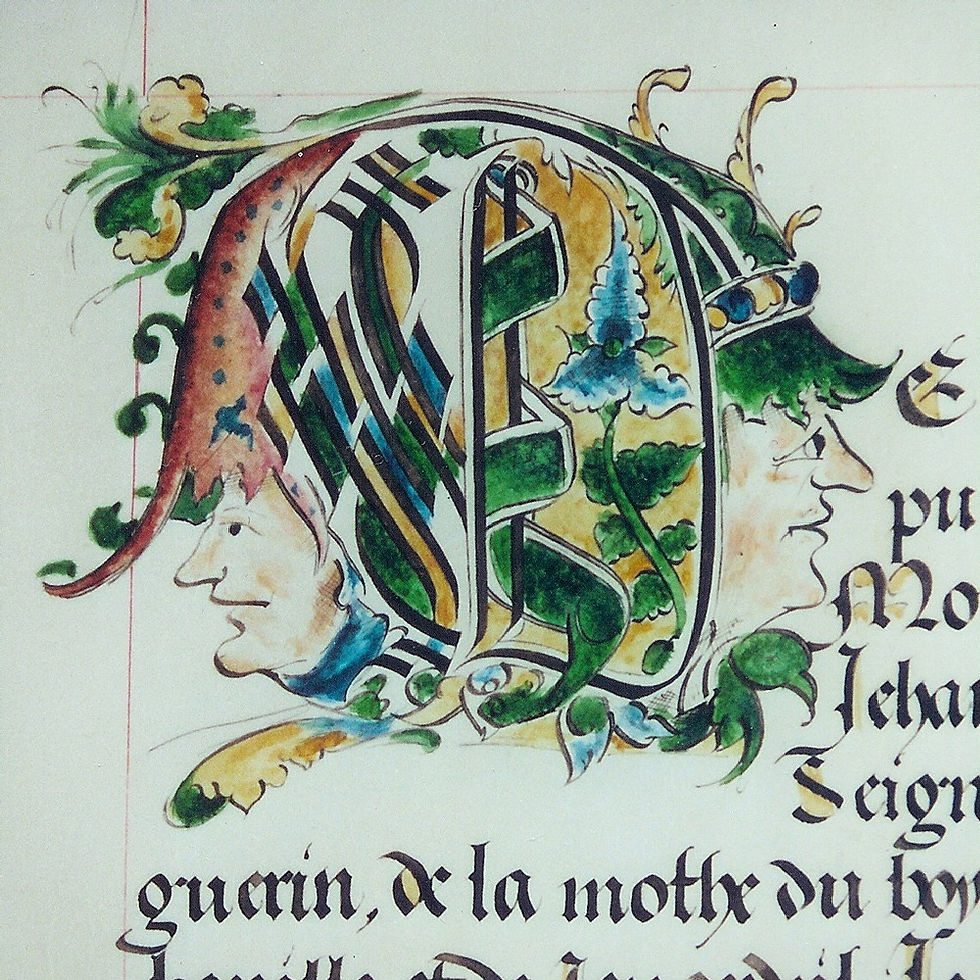 E
pu
Mo
Jehan
Seign
guerin, de la mothe du boy
et de